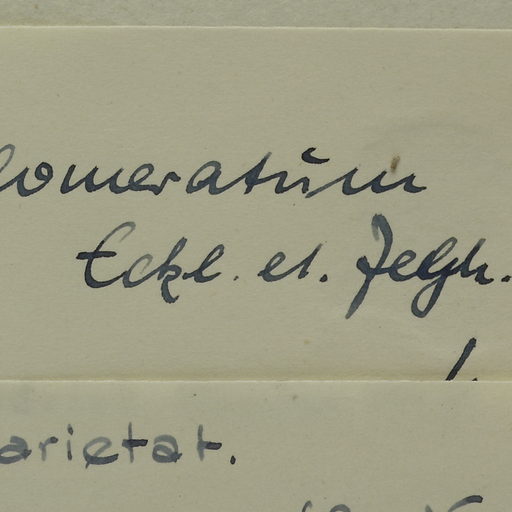 lomeratum
Eckl. et. Zeyh.
arietat.